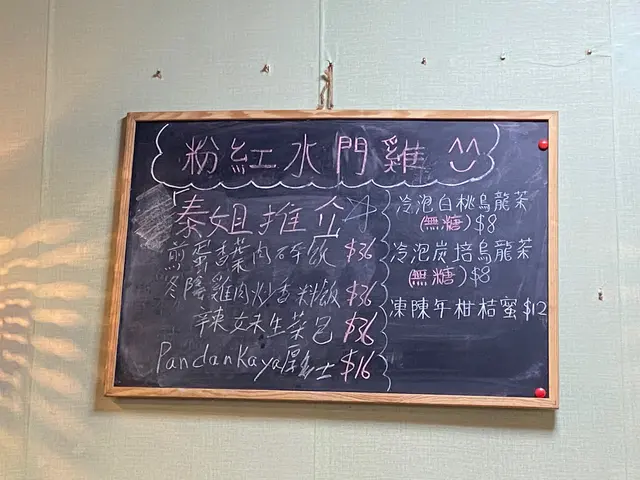 粉紅水門雞 ^^
泰姐推介
煎蛋香葉肉碎飯 $36
冬陰雞肉炒香料飯 $36
辣妹生菜包 $36
PandanKaya厚多士 $16
冷泡白桃烏龍茶
(無糖) $8
冷泡炭培烏龍茶
(無糖) $8
凍陳年柑桔蜜 $12